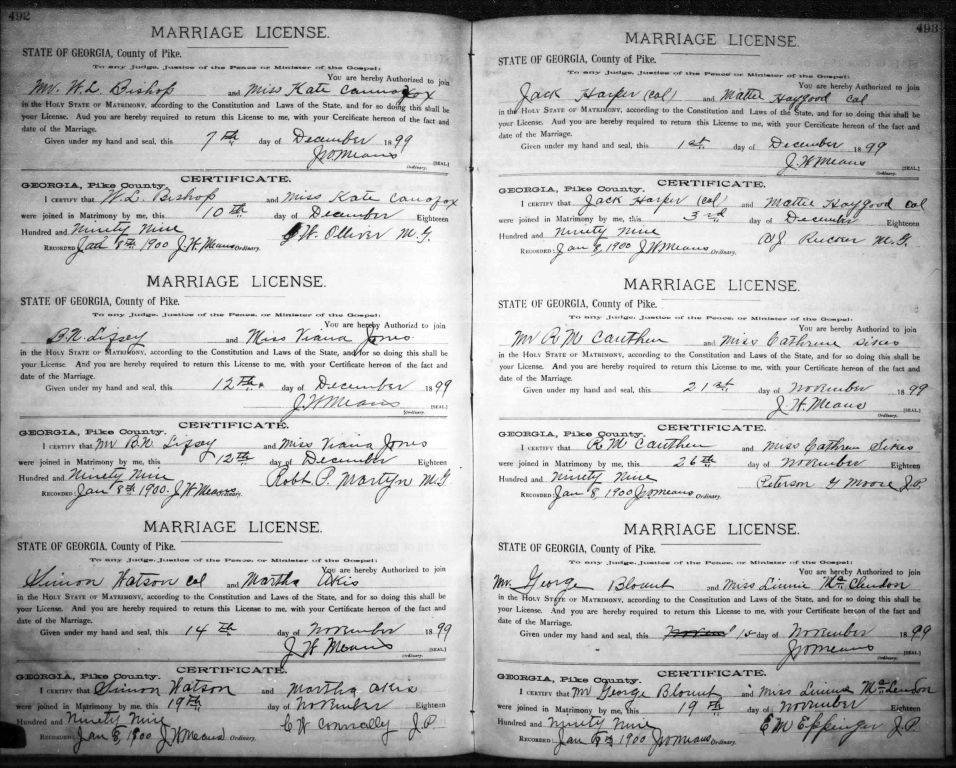 492
MARRIAGE LICENSE.
STATE OF GEORGIA, County of Pike.
To any Judge, Justice of the Peace or Minister of the Gospel:
You are hereby Authorized to join
Mr. W. L. Bishop and Miss Kate
in the HOLY STATE OF MATRIMONY, according to the Constitution and Laws of the State, and for so doing this shall be
your License. And you are hereby required to return this License to me, with your Certificate hereon of the fact and
date of the Marriage.
Given under my hand and seal, this 7th day of December 1899
J W Means [SEAL.]
Ordinary.
CERTIFICATE.
GEORGIA, Pike County.
I CERTIFY that W. L. Bishop and Miss Kate
were joined in Matrimony by me, this 10th day of December Eighteen
Hundred and Ninety Nine J W. Olliver M. G.
RECORDED Jan 8th 1900 J. W. Means Ordinary.
MARRIAGE LICENSE.
STATE OF GEORGIA, County of Pike.
To any Judge, Justice of the Peace, or Minister of the Gospel:
You are hereby Authorized to join
B. N. Lifsey and Miss Viana Jones
in the HOLY STATE OF MATRIMONY, according to the Constitution and Laws of the State, and for so doing this shall be
your License. And you are hereby required to return this License to me, with your Certificate hereon of the fact and
date of the Marriage.
Given under my hand and seal, this 12th day of December 1899
J W Means [SEAL.]
Ordinary.
CERTIFICATE.
GEORGIA, Pike County.
I CERTIFY that Mr B. N. Lifsey and Miss Viana Jones
were joined in Matrimony by me, this 12th day of December Eighteen
Hundred and Ninety Nine Robt P. Martyn M. G.
RECORDED Jan 8th 1900. J. W Means Ordinary.
MARRIAGE LICENSE.
STATE OF GEORGIA, County of Pike.
To any Judge, Justice of the Peace, or Minister of the Gospel:
You are hereby Authorized to join
Simon Watson col and Martha Akis
in the HOLY STATE OF MATRIMONY, according to the Constitution and Laws of the State, and for so doing this shall be
your License. And you are hereby required to return this License to me, with your Certificate hereon of the fact and
date of the Marriage.
Given under my hand and seal, this 14th day of November 1899
J. W Means [SEAL.]
Ordinary.
CERTIFICATE.
GEORGIA, Pike County.
I CERTIFY that Simon Watson and Martha Akis
were joined in Matrimony by me, this 19th day of November Eighteen
Hundred and Ninety Nine C W Connally J. P.
RECORDED: Jan 8, 1900 J W Means Ordinary.
493
MARRIAGE LICENSE.
STATE OF GEORGIA, County of Pike.
To any Judge, Justice of the Peace or Minister of the Gospel:
You are hereby Authorized to join
Jack Harper (Col) and Mattie Haygood Col
in the HOLY STATE OF MATRIMONY, according to the Constitution and Laws of the State, and for so doing this shall be
your License. And you are hereby required to return this License to me, with your Certificate hereon of the fact and
date of the Marriage.
Given under my hand and seal, this 1st day of December 1899
J. W Means [SEAL.]
Ordinary.
CERTIFICATE.
GEORGIA, Pike County.
I CERTIFY that Jack Harper (Col) and Mattie Haygood Col
were joined in Matrimony by me, this 3rd day of December Eighteen
Hundred and Ninety Nine Rucker M. G.
RECORDED: Jan 8, 1900 J W Means Ordinary.
MARRIAGE LICENSE.
STATE OF GEORGIA, County of Pike.
To any Judge, Justice of the Peace, or Minister of the Gospel:
You are hereby Authorized to join
Mr R M Cauthen and Miss Cathrene Sikes
in the HOLY STATE OF MATRIMONY, according to the Constitution and Laws of the State, and for so doing this shall be
your License. And you are hereby required to return this License to me, with your Certificate hereon of the fact and
date of the Marriage.
Given under my hand and seal, this 21st day of November 1899
J. W. Means [SEAL.]
Ordinary.
CERTIFICATE.
GEORGIA, Pike County.
I CERTIFY that R M Cauthen and Miss Cathren Sikes
were joined in Matrimony by me, this 26th day of November Eighteen
Hundred and Ninety Nine Peterson G Moore J. P.
RECORDED: Jan 8, 1900 J W Means Ordinary.
MARRIAGE LICENSE.
STATE OF GEORGIA, County of Pike.
To any Judge, Justice of the Peace, or Minister of the Gospel:
You are hereby Authorized to join
Mr. George Blount and Miss Linnie McClendon
in the HOLY STATE OF MATRIMONY, according to the Constitution and Laws of the State, and for so doing this shall be
your License. And you are hereby required to return this License to me, with your Certificate hereon of the fact and
date of the Marriage.
Given under my hand and seal, this day of November 1899
J W Means [SEAL.]
Ordinary.
CERTIFICATE.
GEORGIA, Pike County.
I CERTIFY that Mr George Blount and Miss Linnie McLendon
were joined in Matrimony by me, 19th day of November Eighteen
Hundred and Ninety Nine E M Eppinger J. P.
RECORDED: Jan 8th 1900 J W Means Ordinary.